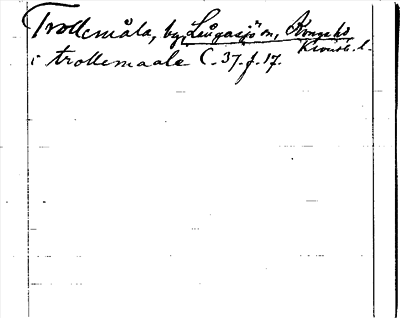 Trollemåla, by, Långasjö sn, Konga hd,
Kronob. l.
i trollemaale C. 37. f. 17.